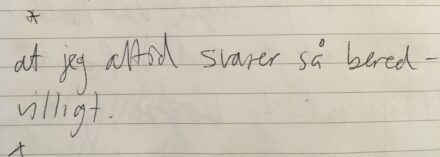 *
at jeg altid svarer så bered-
villigt.